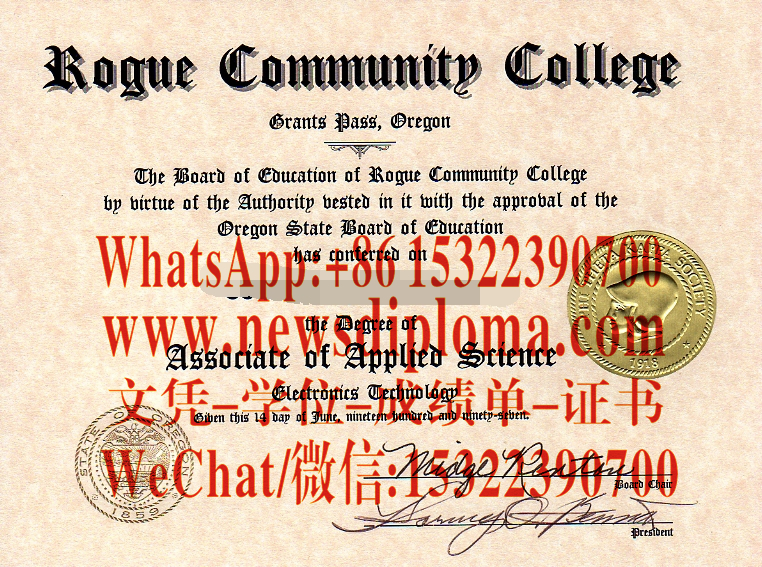 Rogue Community College
Grants Pass, Oregon
The Board of Education of Rogue Community College
by virtue of the Authority vested in it with the approval of the
Oregon State Board of Education
has conferred on
WhatsApp:+86 15322390700
the Degree of
www.newsdiploma.com
Associate of Applied Science
文凭–学位–成绩单–证书
Electronics Technology
Given this 14 day of June, nineteen hundred and ninety-seven.
WeChat/微信:15322390700
Board Chair
President
PHI THETA KAPPA SOCIETY
1918
STATE OF OREGON
1859